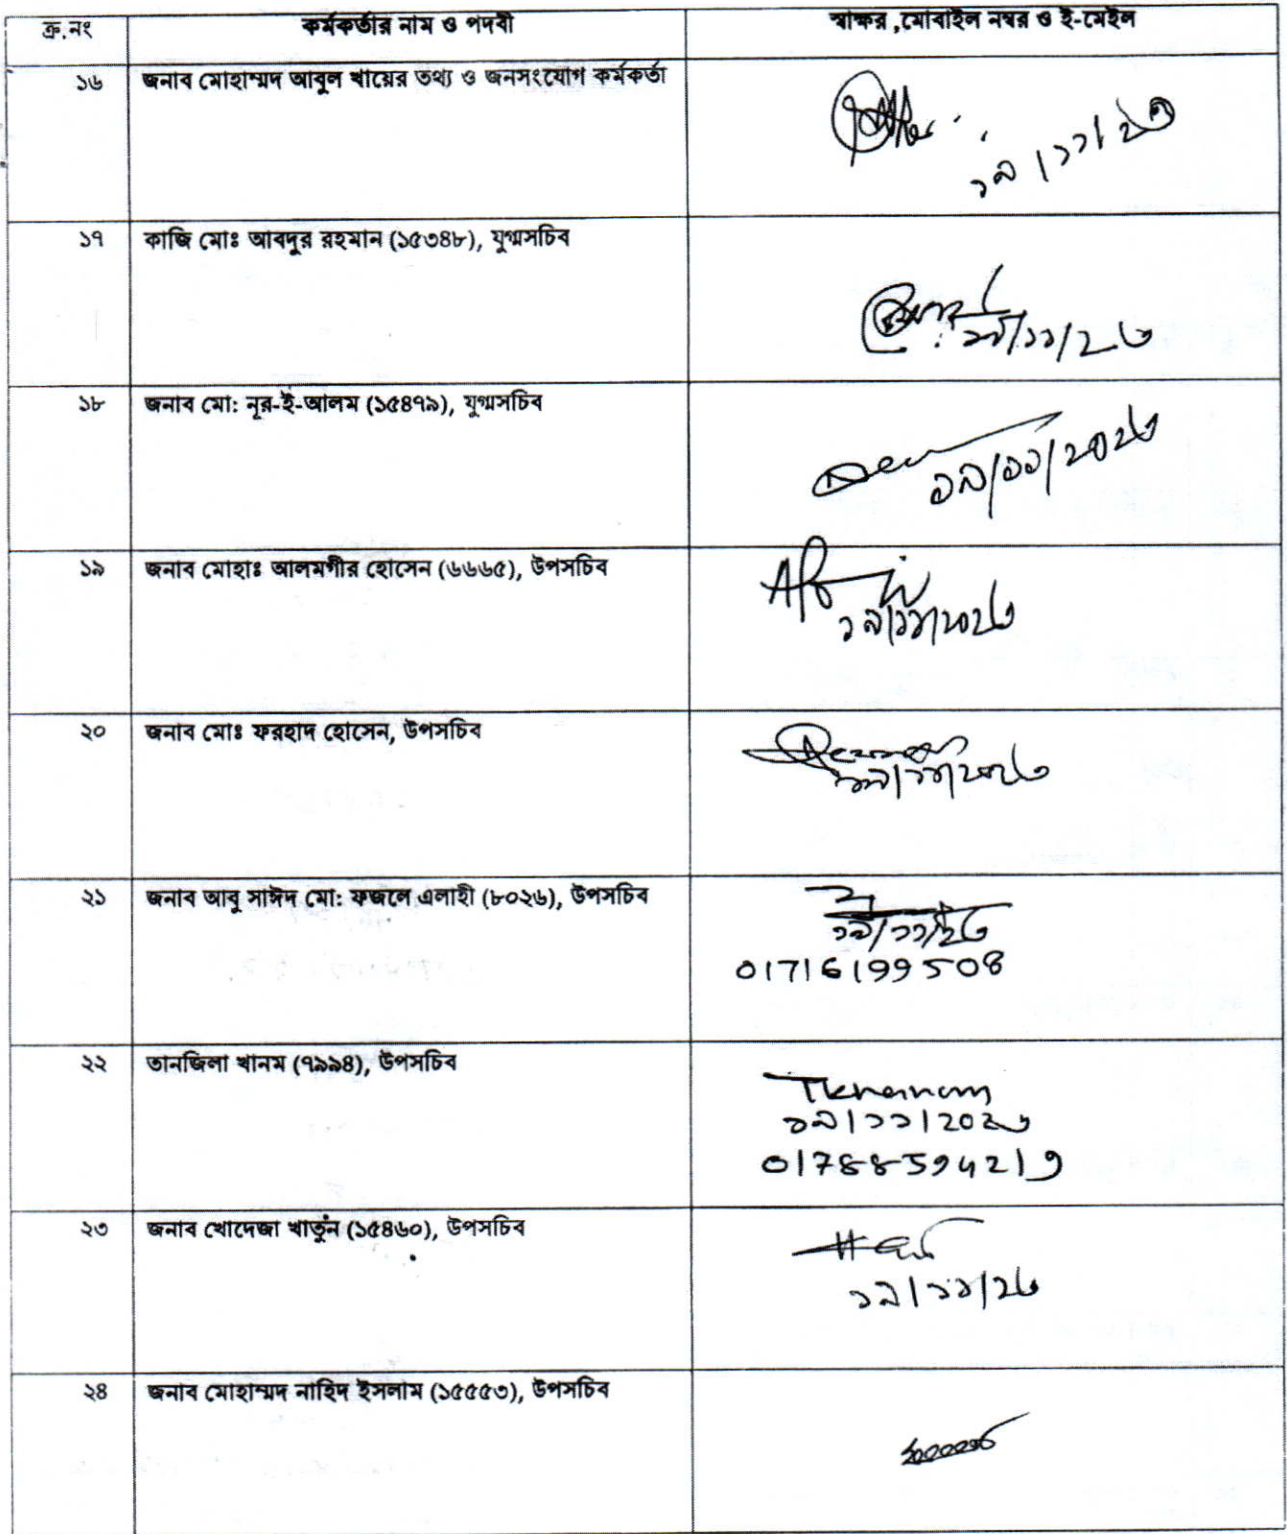 ক্র.নং কর্মকর্তার নাম ও পদবী স্বাক্ষর ,মোবাইল নম্বর ও ই-মেইল
১৬ জনাব মোহাম্মদ আবুল খায়ের তথ্য ও জনসংযোগ কর্মকর্তা
১৯/১১/২৩
১৭ কাজি মোঃ আবদুর রহমান (১৫৩৪৮), যুগ্মসচিব
১৯/১১/২৩
১৮ জনাব মো: নূর-ই-আলম (১৫৪৭৯), যুগ্মসচিব
১৯/১১/২০২৩
১৯ জনাব মোহাঃ আলমগীর হোসেন (৬৬৬৫), উপসচিব
১৯/১১/২০২৩
২০ জনাব মোঃ ফরহাদ হোসেন, উপসচিব
১৯/১১/২০২৩
২১ জনাব আবু সাঈদ মো: ফজলে এলাহী (৮০২৬), উপসচিব
১৯/১১/২৩
01716199508
২২ তানজিলা খানম (৭৯৯৪), উপসচিব
Tkhanam
১৯/১১/২০২৩
01788594219
২৩ জনাব খোদেজা খাতুন (১৫৪৬০), উপসচিব
১৯/১১/২৩
২৪ জনাব মোহাম্মদ নাহিদ ইসলাম (১৫৫৫৩), উপসচিব